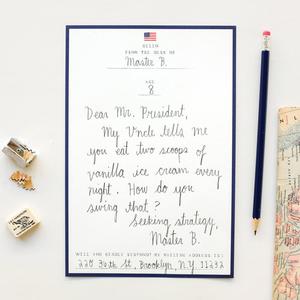 HELLO
FROM THE DESK OF
Master B.
AGE
8
Dear Mr. President,
My Uncle tells me
you eat two scoops of
vanilla ice cream every
night. How do you
swing that?
Seeking strategy,
Master B.
WILL YOU KINDLY RESPOND? MY MAILING ADDRESS IS:
220 36th St, Brooklyn, N.Y. 11232